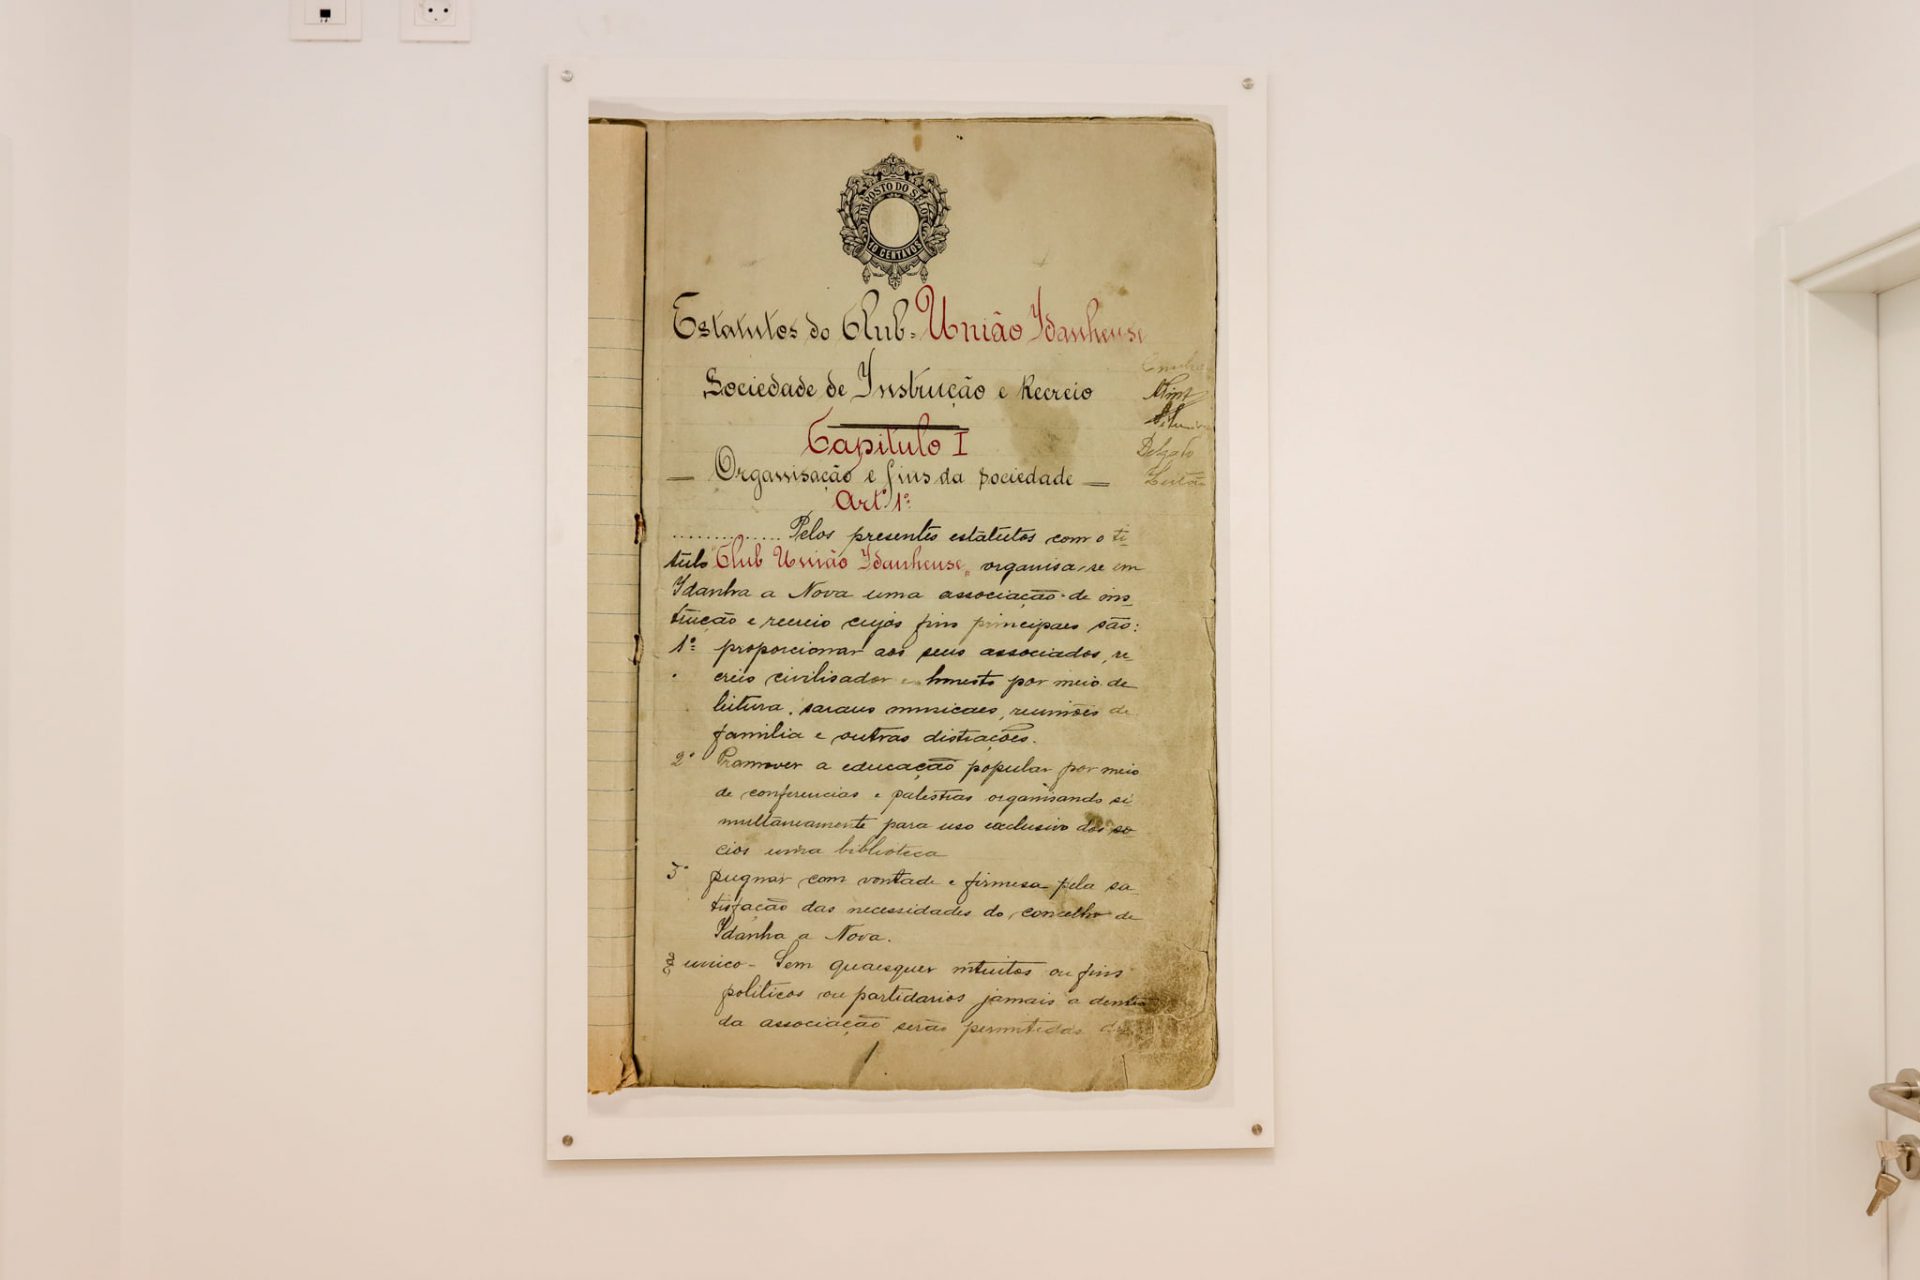 IMPOSTO DO SELO
10 CENTAVOS
Estatutos do Club-União Idanhense
Sociedade de Instrução e Recreio
Capitulo I
— Organisação e fins da sociedade —
Art.º 1º
.............. Pelos presentes estatutos com o ti-
tulo Club União Idanhense, organisa-se em
Idanha a Nova uma associação de ins-
trução e recreio cujos fins principaes são:
1º proporcionar aos seus associados, re-
creio civilisador e honesto por meio de
leitura, saraus musicaes, reuniões de
familia e outras distrações.
2º Promover a educação popular por meio
de conferencias e palestras organisando si-
multaneamente para uso exclusivo dos so-
cios uma biblioteca
3º pugnar com vontade e firmesa pela sa-
tisfação das necessidades do concelho de
Idanha a Nova.
§ unico - Sem quaesquer intuitos ou fins
politicos ou partidarios jamais a dentro
da associação serão permitidas
Delgado
Leitão